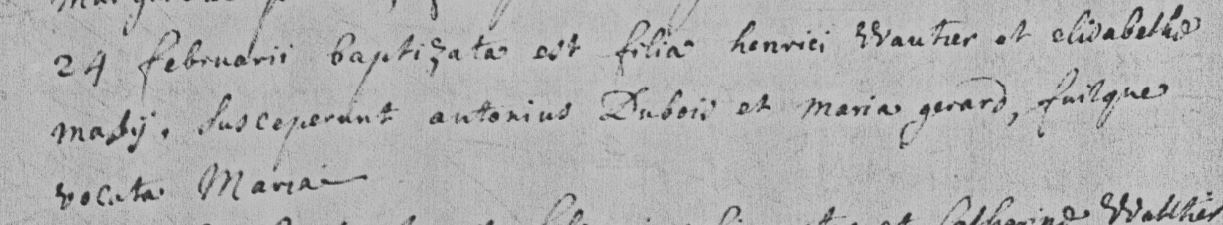 24 februarii baptizata est filia henrici Wautier et elisabethæ
susceperunt antonius Dubois et maria gerard, fuitque
vocata Maria
et Catherinæ Wautier